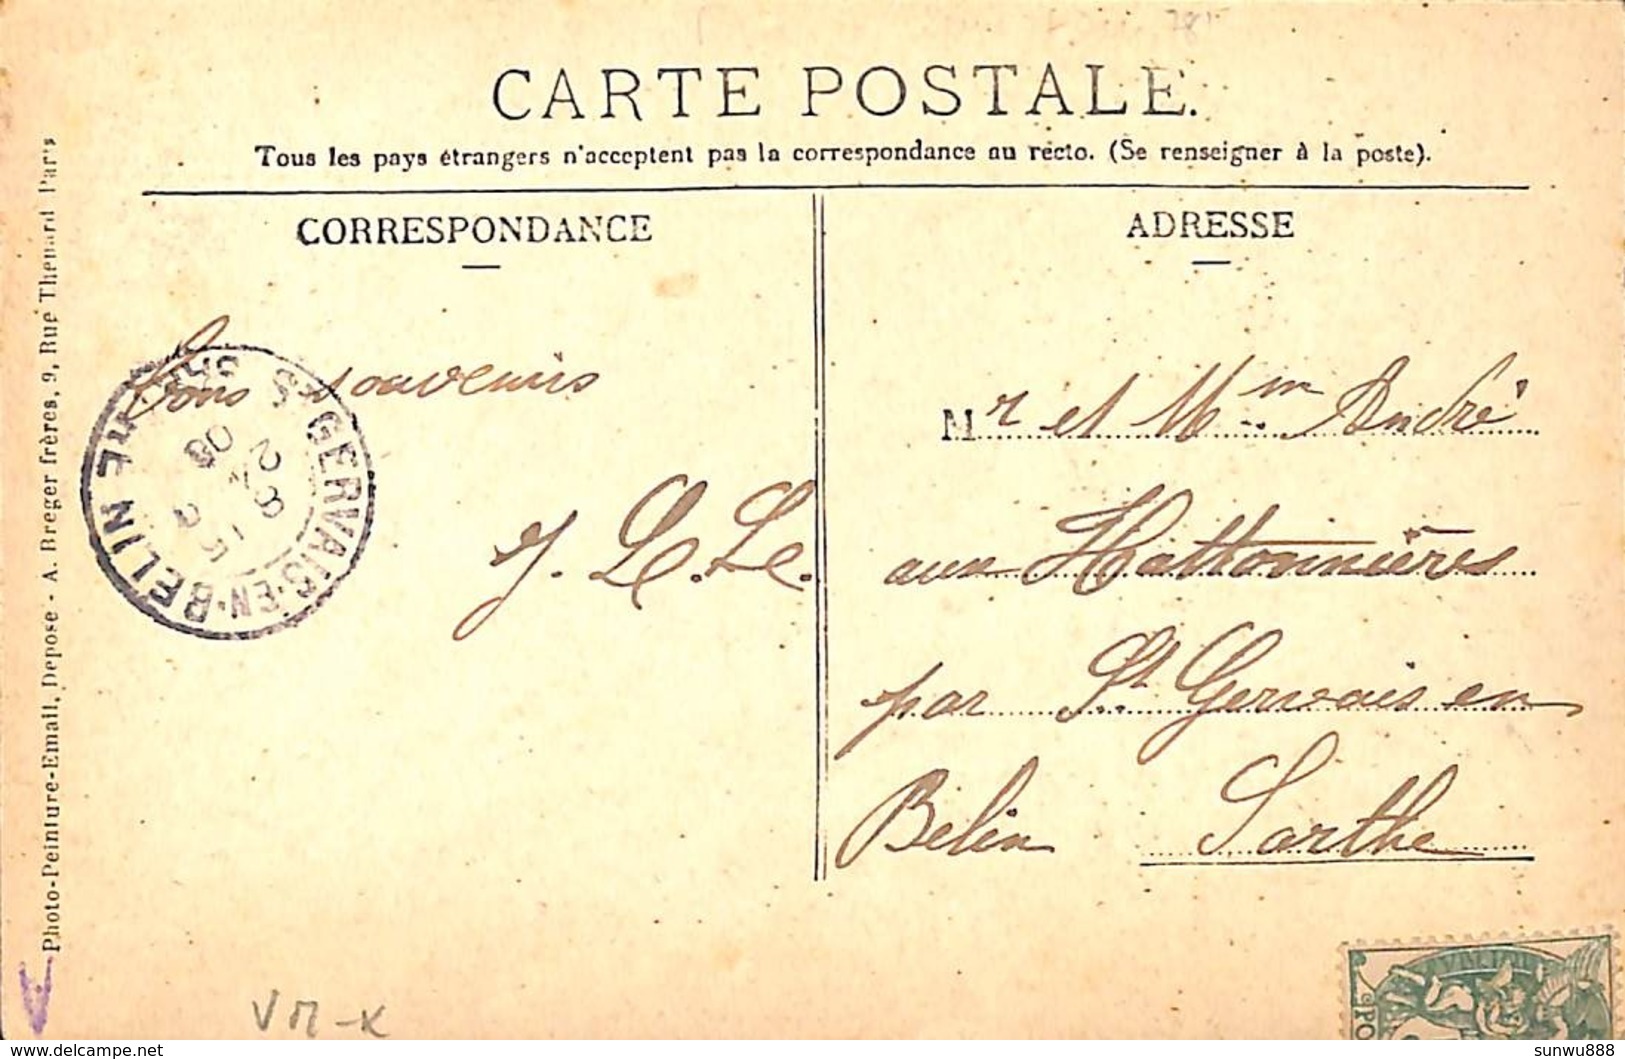 CARTE POSTALE.
Tous les pays étrangers n'acceptent pas la correspondance au recto. (Se renseigner à la poste).
CORRESPONDANCE
ADRESSE
Bons souvenirs
Mr et Mm André
aux Hattonnières
par St Gervais en
Belin Sarthe
Photo-Peinture-Email, Depose - A. Breger frères, 9, Rue Thenard Paris
ST GERVAIS-EN-BELIN
28
08
VM-K
sunwu888